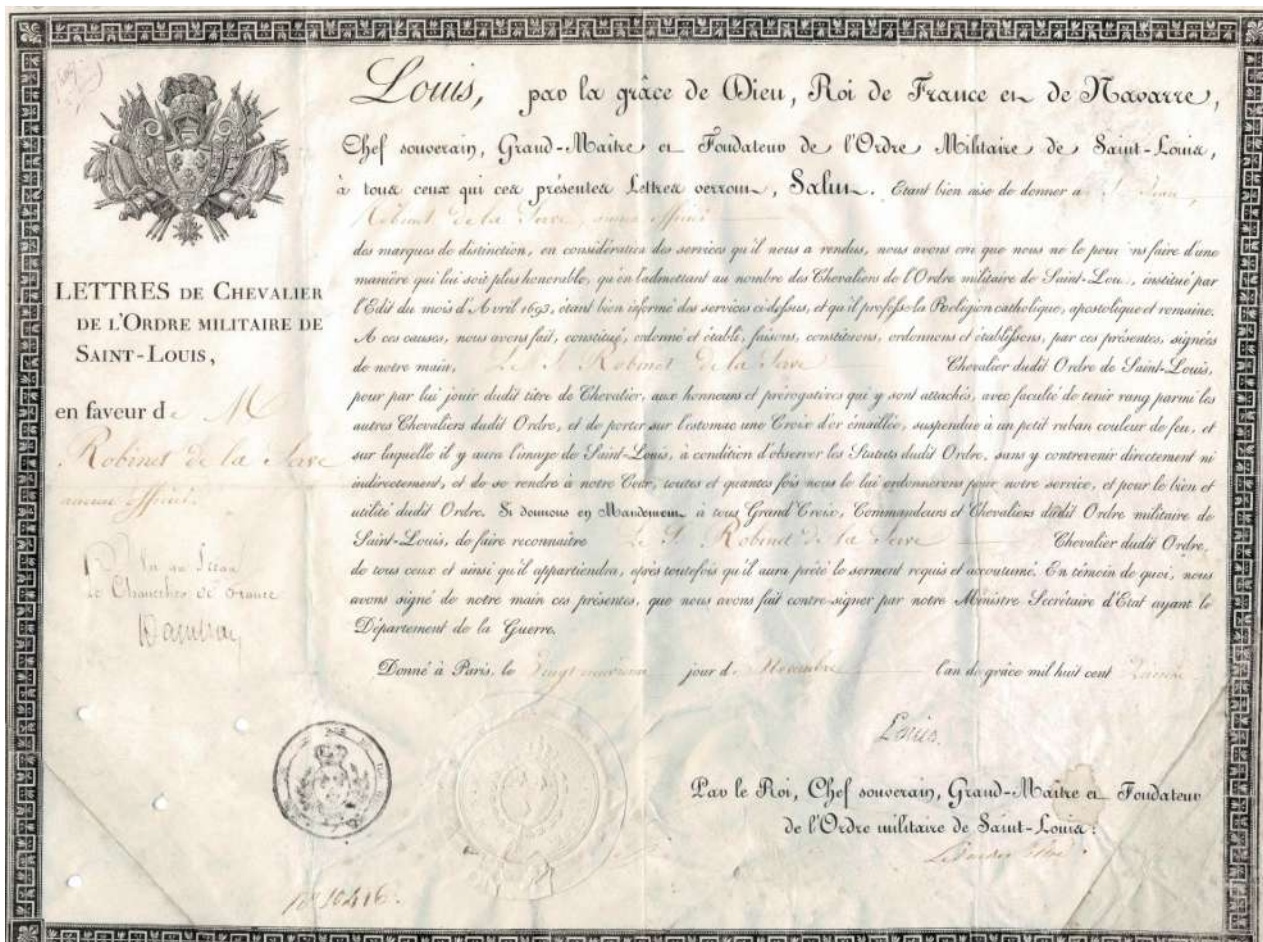 LETTRES DE CHEVALIER
DE L'ORDRE MILITAIRE DE
SAINT-LOUIS,
en faveur de M
Robinet de la Serve
ancien officier.
Vu au Sceau
Le Chancelier de France
Dambray
Louis, par la grâce de Dieu, Roi de France et de Navarre,
Chef souverain, Grand-Maître et Fondateur de l'Ordre Militaire de Saint-Louis,
à tous ceux qui ces présentes Lettres verront, Salut. Etant bien aise de donner a S. Jean
Robinet de la Serve, ancien officier
des marques de distinction, en considération des services qu'il nous a rendus, nous avons cru que nous ne le pouv ns faire d'une
manière qui lui soit plus honorable, qu'en l'admettant au nombre des Chevaliers de l'Ordre militaire de Saint-Lou , institué par
l'Edit du mois d'Avril 1693, étant bien informé des services ci-dessus, et qu'il professe la Religion catholique, apostolique et romaine.
A ces causes, nous avons fait, constitué, ordonné et établi, faisons, constituons, ordonnons et établissons, par ces présentes, signées
de notre main, Le S. Robinet de la Serve Chevalier dudit Ordre de Saint-Louis,
pour par lui jouir dudit titre de Chevalier, aux honneurs et prérogatives qui y sont attachés, avec faculté de tenir rang parmi les
autres Chevaliers dudit Ordre, et de porter sur l'estomac une Croix d'or émaillée, suspendue à un petit ruban couleur de feu, et
sur laquelle il y aura l'image de Saint-Louis, à condition d'observer les Statuts dudit Ordre, sans y contrevenir directement ni
indirectement, et de se rendre à notre Cour, toutes et quantes fois nous le lui ordonnerons pour notre service, et pour le bien et
utilité dudit Ordre. Si donnons en Mandement à tous Grand'Croix, Commandeurs et Chevaliers dudit Ordre militaire de
Saint-Louis, de faire reconnaître Le S. Robinet de la Serve Chevalier dudit Ordre,
de tous ceux et ainsi qu'il appartiendra, après toutefois qu'il aura prêté le serment requis et accoutumé. En témoin de quoi, nous
avons signé de notre main ces présentes, que nous avons fait contre-signer par notre Ministre Secrétaire d'Etat ayant le
Département de la Guerre.
Donné à Paris, le Vingt neuvième jour de Novembre l'an de grâce mil huit cent
Louis.
Par le Roi, Chef souverain, Grand-Maître et Fondateur
de l'Ordre militaire de Saint-Louis:
Nº 10416.